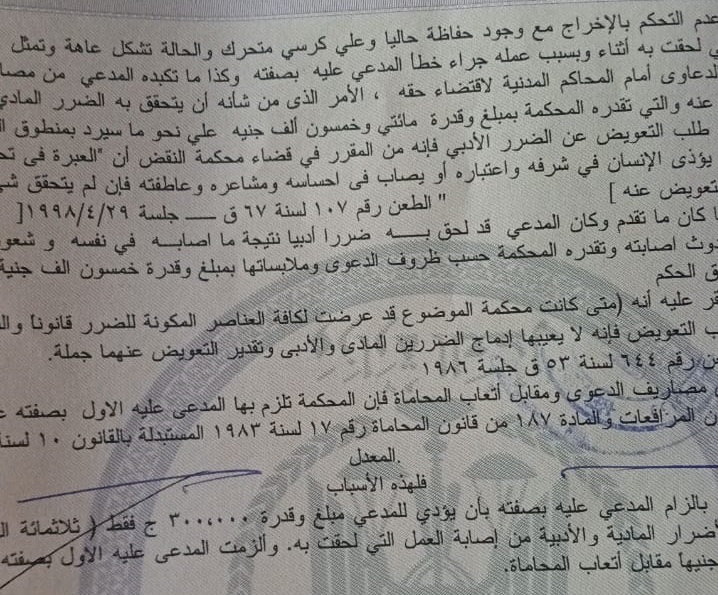 عدم التحكم بالإخراج مع وجود حفاظة حاليا وعلي كرسي متحرك والحالة تشكل عاهة وتمثل
لحقت به أثناء وبسبب عمله جراء خطأ المدعي عليه بصفته وكذا ما تكبده المدعي من
لدعاوى أمام المحاكم المدنية لاقتضاء حقه ، الأمر الذى من شأنه أن يتحقق به الضرر المادي
عنه والتي تقدره المحكمة بمبلغ وقدرة مائتي وخمسون ألف جنيه علي نحو ما سيرد بمنطوق
طلب التعويض عن الضرر الأدبي فإنه من المقرر في قضاء محكمة النقض أن "العبرة فى
يؤذى الإنسان في شرفه واعتباره أو يصاب فى احساسه ومشاعره وعاطفته فإن لم يتحقق
تعويض عنه ] " الطعن رقم ١٠٧ لسنة ٦٧ ق ـــ جلسة ١٩٩٨/٤/٢٩]
ا كان ما تقدم وكان المدعي قد لحق بـــه ضررا أدبيا نتيجة ما اصابـــه في نفسه و
اصابته وتقدره المحكمة حسب ظروف الدعوى وملابساتها بمبلغ وقدرة خمسون الف جنية
ق الحكم
ر عليه أنه (متى كانت محكمة الموضوع قد عرضت لكافة العناصر المكونة للضرر قانونا
ب التعويض فإنه لا يعيبها إدماج الضررين المادى والأدبى وتقدير التعويض عنهما جملة.
رقم ٦٤٤ لسنة ٥٣ ق جلسة ١٩٨٦
مصاريف الدعوي ومقابل أتعاب المحاماة فان المحكمة تلزم بها المدعي عليه الاول بصفته
المرافعات والمادة ١٨٧ من قانون المحاماة رقم ١٧ لسنة ١٩٨٣ المستبدلة بالقانون ١٠
المعدل.
فلهذه الأسباب
بالزام المدعي عليه بصفته بأن يؤدي للمدعي مبلغ وقدرة ٣٠٠,٠٠٠ ج فقط ( ثلاثمائة
المادية والأدبية من إصابة العمل التي لحقت به. وألزمت المدعى عليه الاول بصفته
جنيها مقابل أتعاب المحاماة.